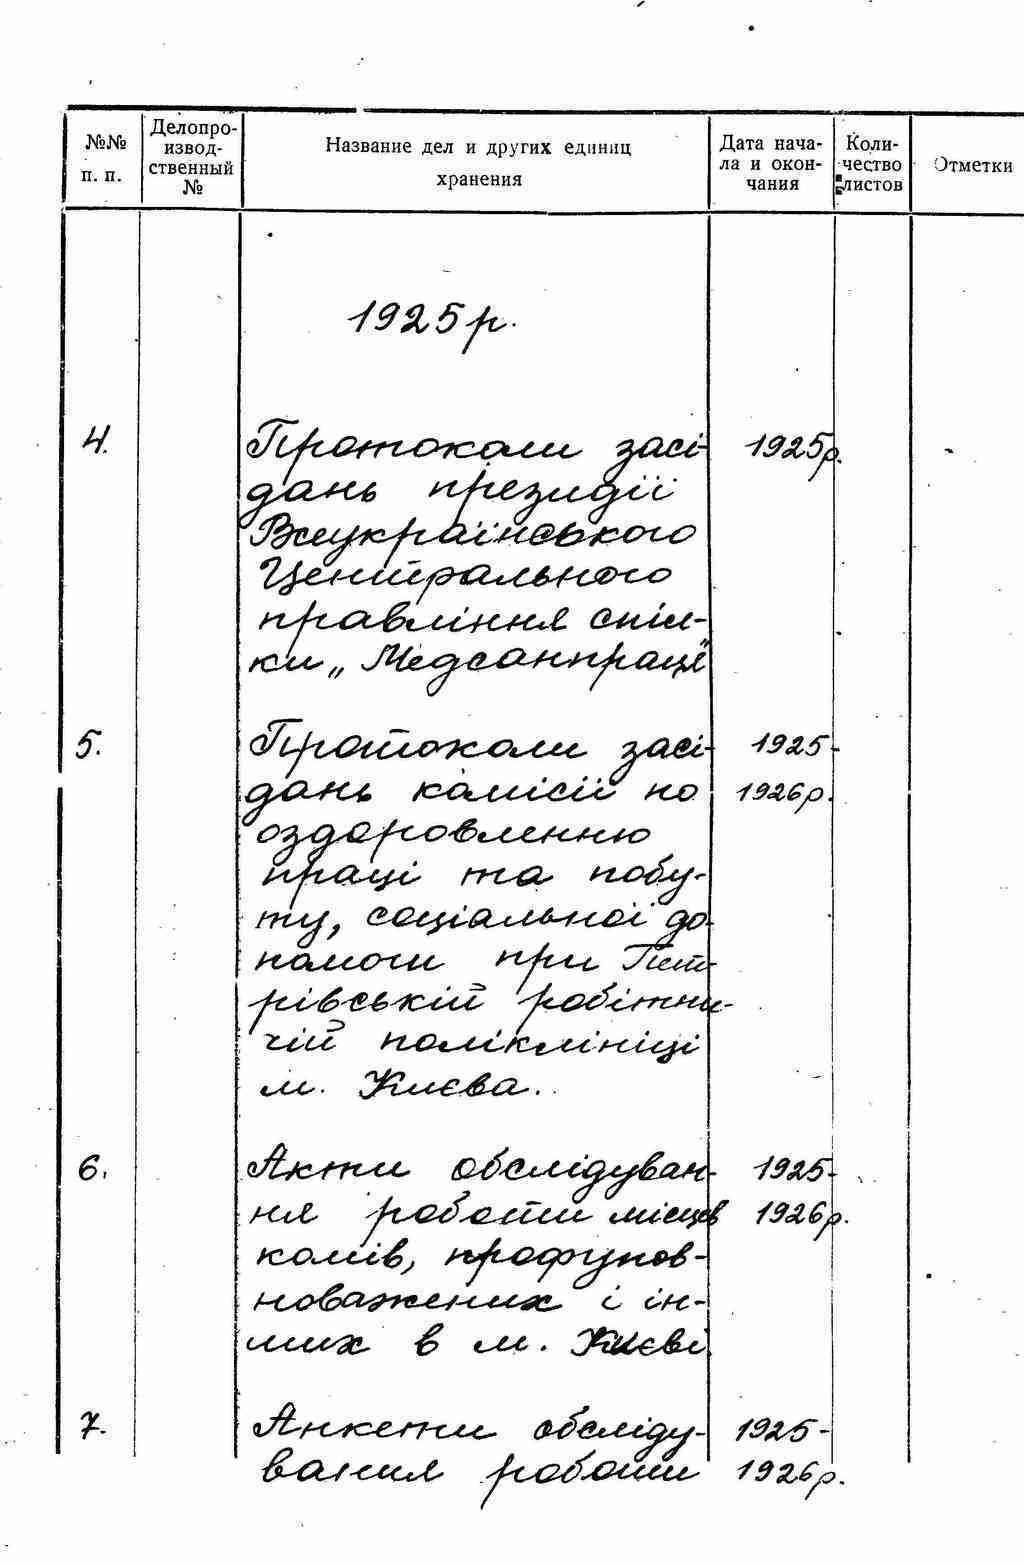 №№ п. п.
Делопро-
извод-
ственный
№
Название дел и других единиц
хранения
Дата нача-
ла и окон-
чания
Коли-
чество
листов
Отметки
1925 р.
4. Протоколи засі- 1925р.
дань президії
Всеукраїнського
Центрального
правління спіл-
ки „Медсанпраці"
5. Протоколи засі- 1925-
дань комісії по 1926р.
оздоровленню
праці та побу-
ту, соціальної до-
помоги при Пет-
рівській робітни-
чій поліклініці
м. Києва.
6. Акти обслідуван- 1925-
ня роботи місцев 1926р.
комів, профупов-
новажених і ін-
ших в м. Києві
7. Анкети обсліду- 1925-
вання роботи 1926р.